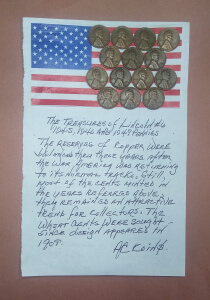 THE TREASURES OF LINCOLN #6
1945, 1946 AND 1947 PENNIES
THE RESERVES OF COPPER WERE
THEN THESE YEARS, AFTER
THE WAR AMERICA WAS RETURNING
TO ITS NORMAL TRACKS, STILL,
MOST OF THE CENTS MINTED IN
THE YEARS REFERRED ABOVE,
THEM REMAINED AN ATTRACTIVE
TREND FOR COLLECTORS. THE
WHEAT CENTS WERE SOUGHT
SINCE DESIGN APPEARED IN
1909.